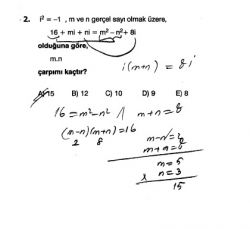 2. i² = -1 , m ve n gerçel sayı olmak üzere,
16 + mi + ni = m² - n² + 8i
olduğuna göre,
i(m+n) = 8i
m.n
çarpımı kaçtır?
A) 15 B) 12 C) 10 D) 9 E) 8
16 = m² - n² // m+n = 8
(m-n)(m+n) = 16
2 8
m-n = 2
m+n = 8
m = 5
x n = 3
15